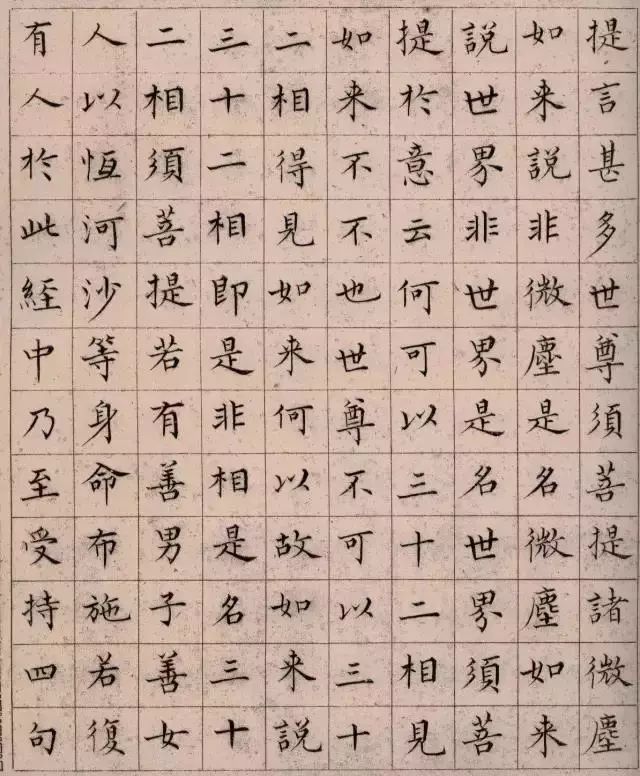 提言甚多世尊須菩提諸微塵
如来說非微塵是名微塵如来
說世界非世界是名世界須菩
提於意云何可以三十二相見
如来不不也世尊不可以三十
二相得見如来何以故如来說
三十二相即是非相是名三十
二相須菩提若有善男子善女
人以恆河沙等身命布施若復
有人於此經中乃至受持四句